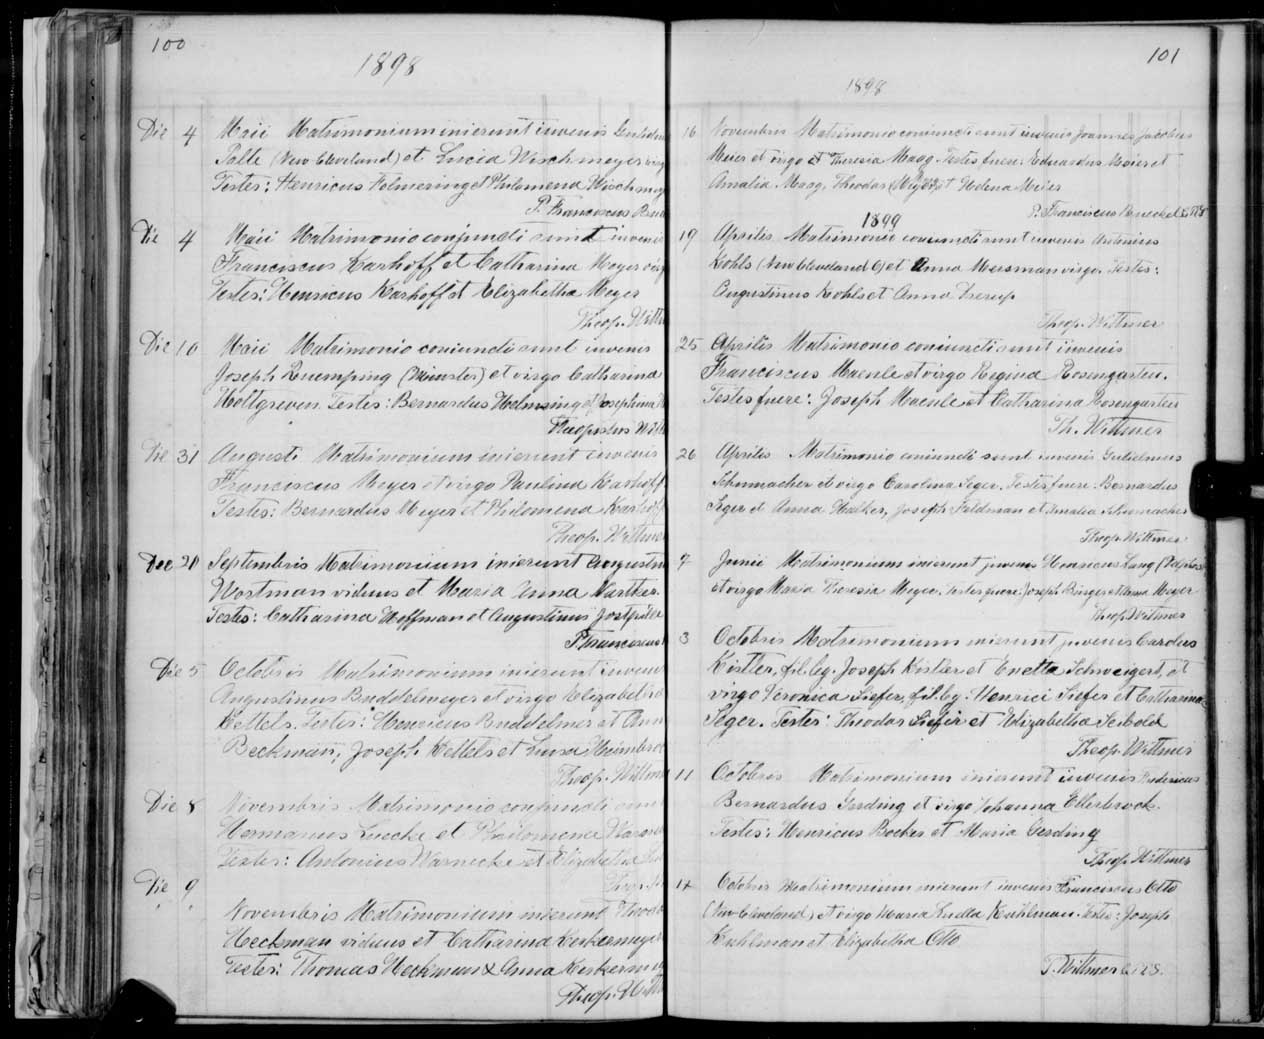 100
1898
Die 4 Maii Matrimonium inierunt iuvenis
Palte (New Cleveland) et Lucia Wischmeyer virg
Testes: Henricus Felmering et Philomena Wischmey
P. Franciscus
Die 4 Maii Matrimonio conjuncti sunt iuvenis
Franciscus Karhoff et Catharina Meyer virg
Testes: Henricus Karhoff et Elizabetha Meyer
Theop. Wittm
Die 10 Maii Matrimonio coniuncti sunt iuvenis
Joseph Ruemping (Münster) et virgo Catharina
Holtgreven. Testes: Bernardus Helmsing et Josephina
Theopistus Witt
Die 31 Augusti Matrimonium inierunt iuvenis
Franciscus Meyer et virgo Paulina Karhoff
Testes: Bernardus Meyer et Philomena Karhoff
Theop. Wittmer
Die 20 Septembris Matrimonium inierunt Augustin
Wortman viduus et Maria Anna
Testes: Catharina Hoffman et Augustinus
P. Franciscus
Die 5 Octobris Matrimonium inierunt iuven
Augustinus Buddelmeyer et virgo Elizabeth
Kettels. Testes: Henricus Buddelmer et Ann
Beckman, Joseph Kettels et Luisa
Theop. Wittm
Die 8 Novembris Matrimonio conjuncti sunt
Hermanus Luecke et Philomena
Testes: Antonius Warnecke et Elizabetha
Theop.
Die 9
Novembris Matrimonium inierunt Theod
Heckman viduus et Catharina Kerkermeyer
Testes: Thomas Heckman & Anna Kerkermey
Theop. Witt
101
1898
16 Novembris Matrimonio coniuncti sunt iuvenis Joannes Jacobus
Meier et virgo et Theresia Maag. Testes fuere: Eduardus Meier et
Amalia Maag, Theodor (Meyer) et Helena Meier
P. Franciscus
1899
19 Aprilis Matrimonio coniuncti sunt iuvenis Antonius
Kohls (New Cleveland O) et Anna Meisman virgo. Testes:
Augustinus Kohls et Anna Drerup
Theop. Wittmer
25 Aprilis Matrimonio coniuncti sunt iuvenis
Franciscus Maenle et virgo Regina Rosengarten.
Testes fuere: Joseph Maenle et Catharina Rosengarten
Th. Wittmer
26 Aprilis Matrimonio coniuncti sunt iuvenis Gulielmus
Schumacher et virgo Carolina Seger. Testes fuere: Bernardus
Seger et Anna Walker, Joseph Feldman et Amalia Schumacher
Theop. Wittmer
7 Junii Matrimonium inierunt juvenis Henricus Lang (Delphos)
et virgo Maria Theresia Meyer, testes fuere: Joseph Binger et Anna Meyer
Theop Wittmer
3 Octobris Matrimonium inierunt juvenis Carolus
Kistler, fil. leg. Joseph Kistler et Enetta Schweigert, et
virgo Veronica Siefer, fil. leg. Henrici Siefer et Catharina
Seger. Testes: Theodor Siefer et Elizabetha Seibold
Theop. Wittmer
11 Octobris Matrimonium inierunt iuvenis Fredericus
Bernardus Gerding et virgo Johanna Ellerbrock.
Testes: Henricus Backer et Maria Gerding
Theop Wittmer
17 Octobris Matrimonium inierunt iuvenis Franciscus Otto
(New Cleveland) et virgo Maria Kuhlman. Testes: Joseph
Kuhlman et Elizabetha Otto
T. Wittmer C.PP.S.